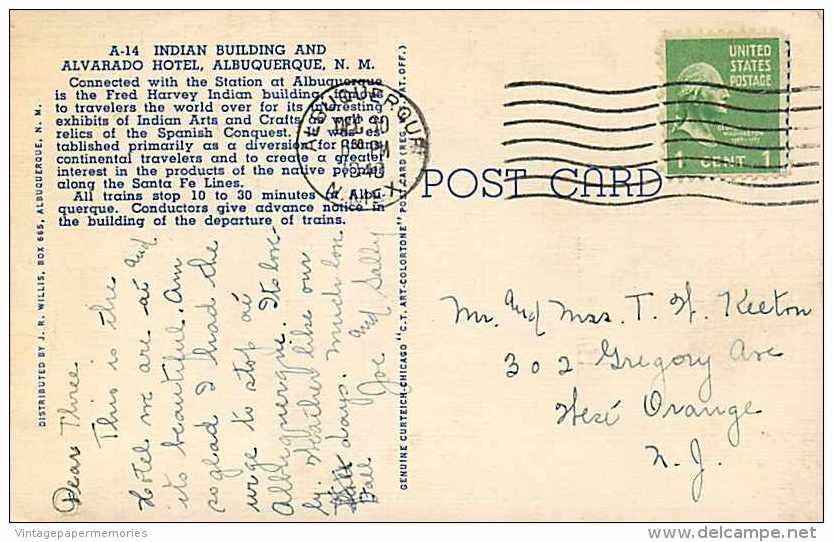 A-14 INDIAN BUILDING AND
ALVARADO HOTEL, ALBUQUERQUE, N. M.
Connected with the Station at Albuquerque
is the Fred Harvey Indian building, famous
to travelers the world over for its interesting
exhibits of Indian Arts and Crafts, as well as
relics of the Spanish Conquest. It was es-
tablished primarily as a diversion for trans-
continental travelers and to create a greater
interest in the products of the native peoples
along the Santa Fe Lines.
All trains stop 10 to 30 minutes in Albu-
querque. Conductors give advance notice in
the building of the departure of trains.
DISTRIBUTED BY J. R. WILLIS, BOX 665, ALBUQUERQUE, N. M.
Dear Three
This is the
Hotel we are at and
its beautiful. Am
so glad I had the
urge to stop at
Albuquerque. Its love-
ly. Weather like our
Fall days. Much love
Joe and Sally
GENUINE CURTEICH-CHICAGO "C.T. ART-COLORTONE" POST CARD (REG. U.S. PAT. OFF.)
ALBUQUERQUE
DEC 10
PM
1940
N. MEX.
POST CARD
UNITED
STATES
POSTAGE
1 CENT 1
Mr. and Mrs. T. W. Keeton
302 Gregory Ave
West Orange
N. J.
Vintagepapermemories
delcampe.net